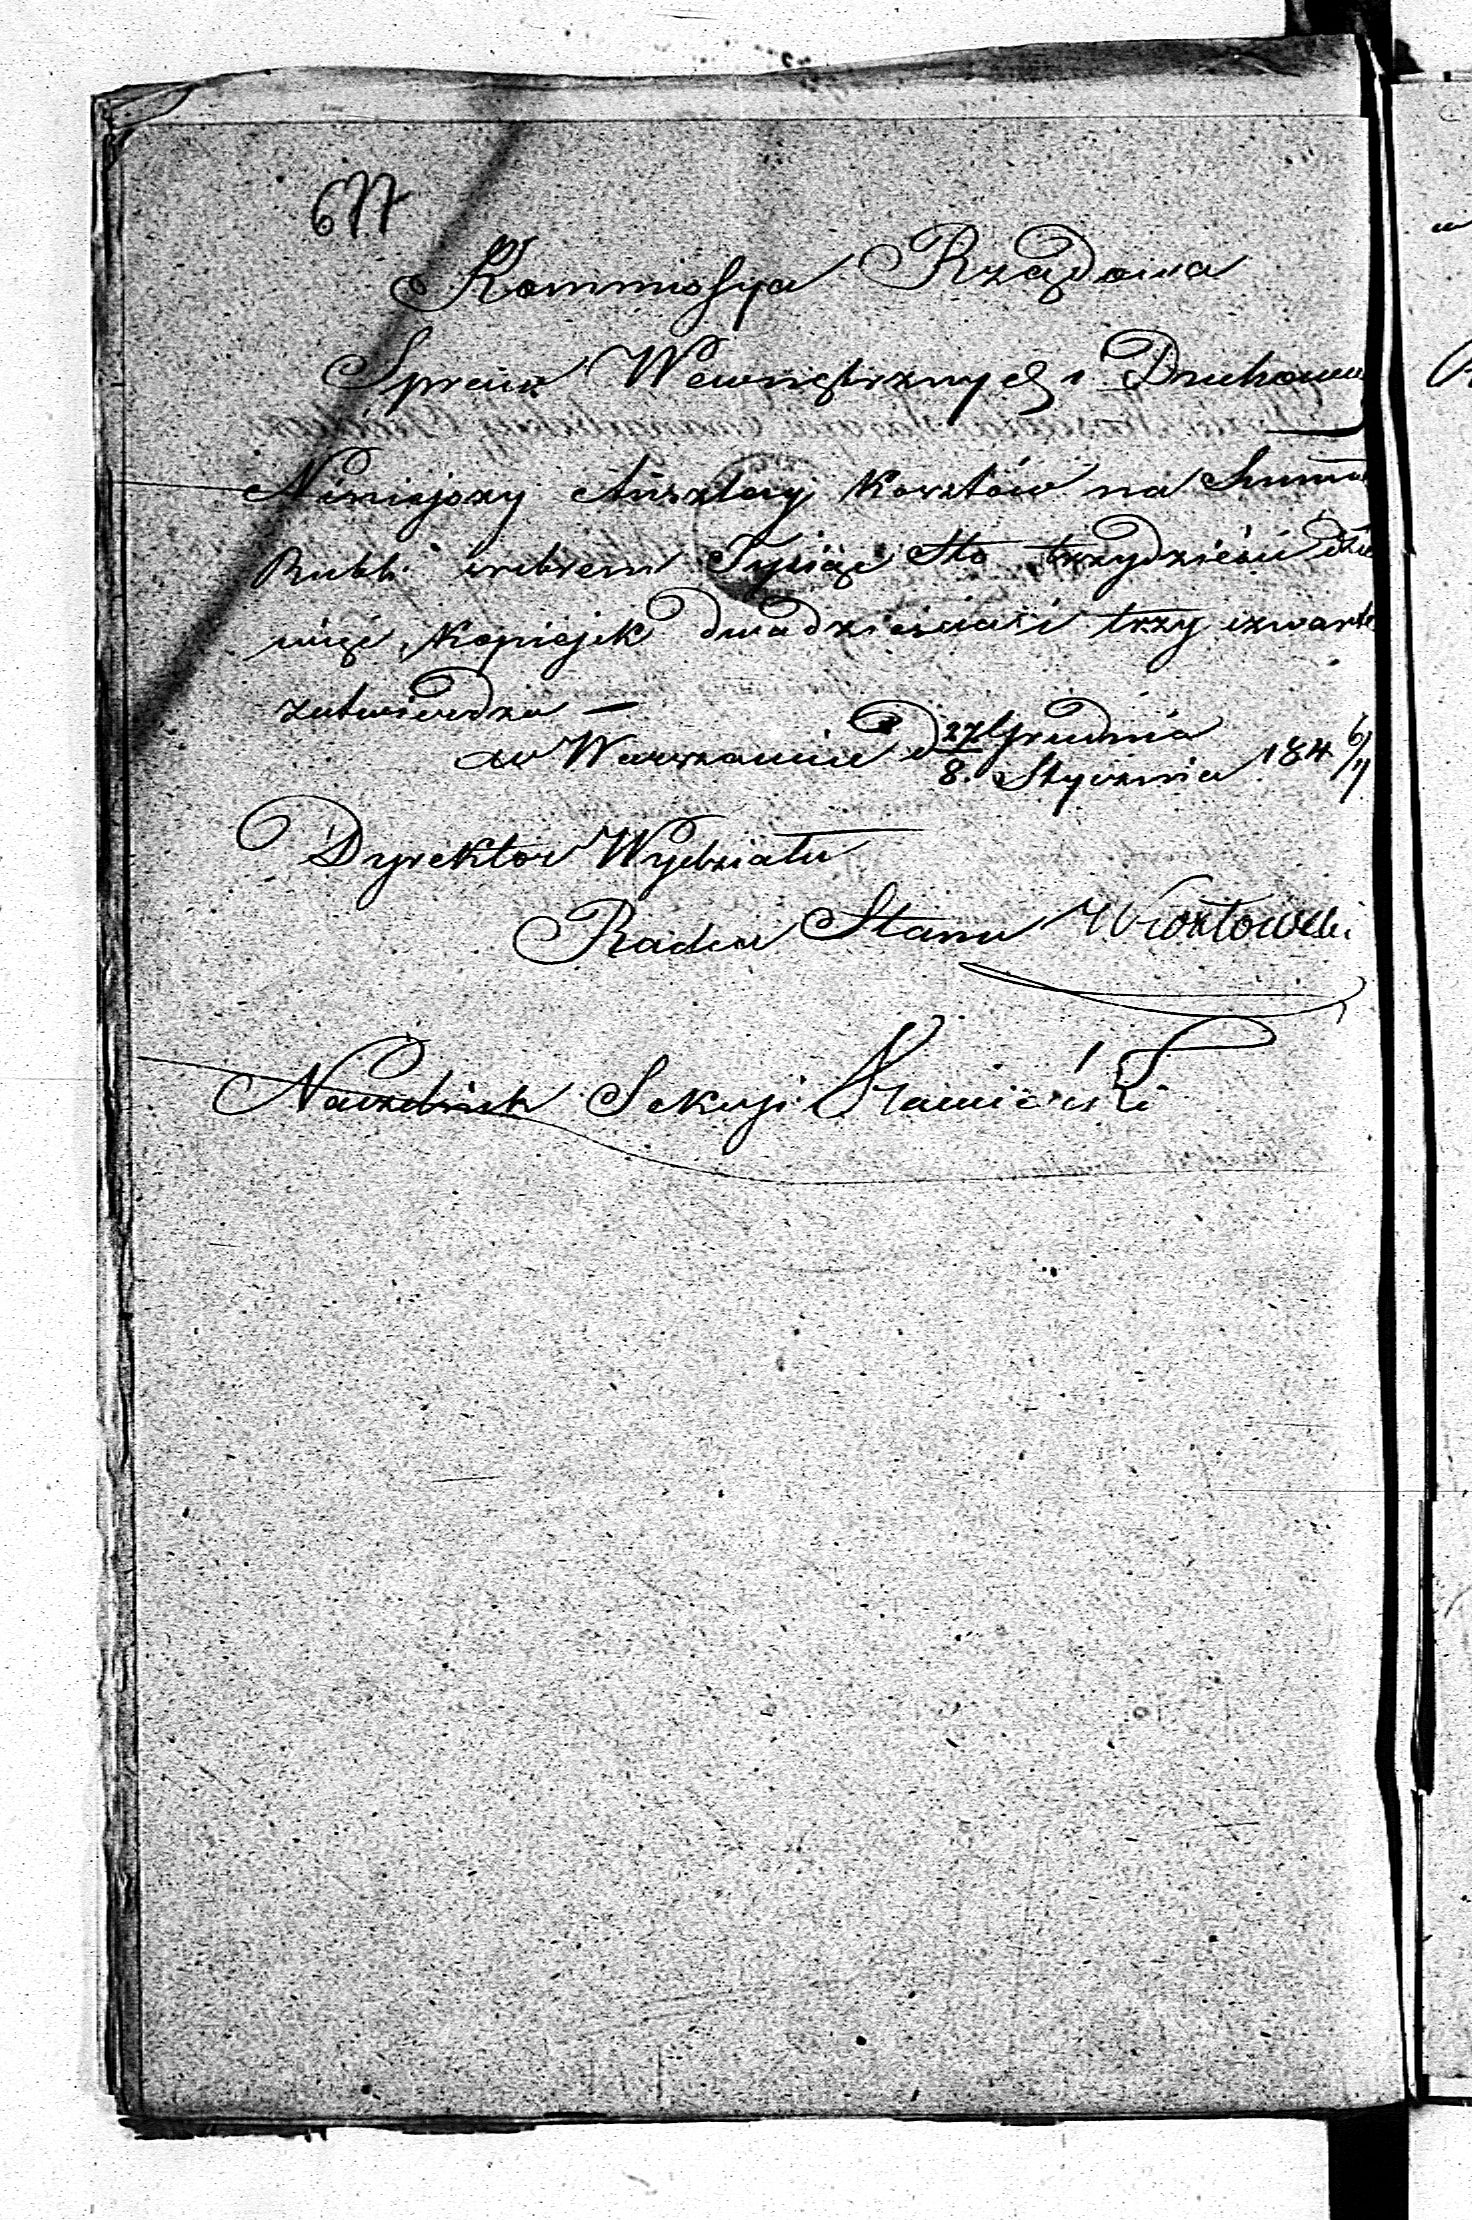 677
Kommissya Rządowa
Spraw Wewnętrznych i Duchown
Niniejszy Anszlag kosztów na Summę
Rubli srebrem Tysiąc Sto trzydzieści dzie
więć, Kopiejek dwadzieścia i trzy czwarte
zatwierdza —
w Warszawie d 27 Grudnia
8. Stycznia 184 6/7
Dyrektor Wydziału
Radca Stanu
Naczelnik Sekcyi